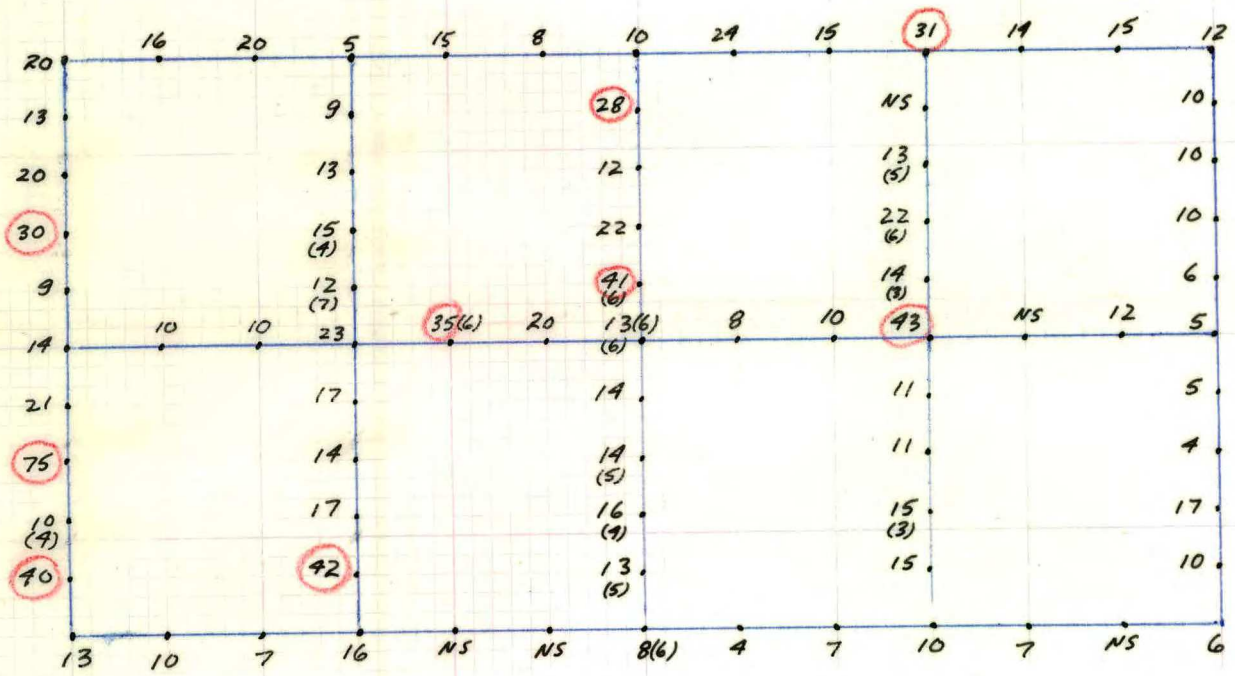 16 20 5 15 8 10 24 15 31 14 15 12
20
13 9 28 NS 10
20 13 12 13 10
(5)
30 15 22 22 10
(4) (6)
9 12 41 14 6
(7) (6) (3)
14 10 10 23 35(6) 20 13(6) 8 10 43 NS 12 5
(6)
21 17 14 11 5
75 14 14 11 4
(5)
10 17 16 15 17
(4) (4) (3)
40 42 13 15 10
(5)
13 10 7 16 NS NS 8(6) 4 7 10 7 NS 6